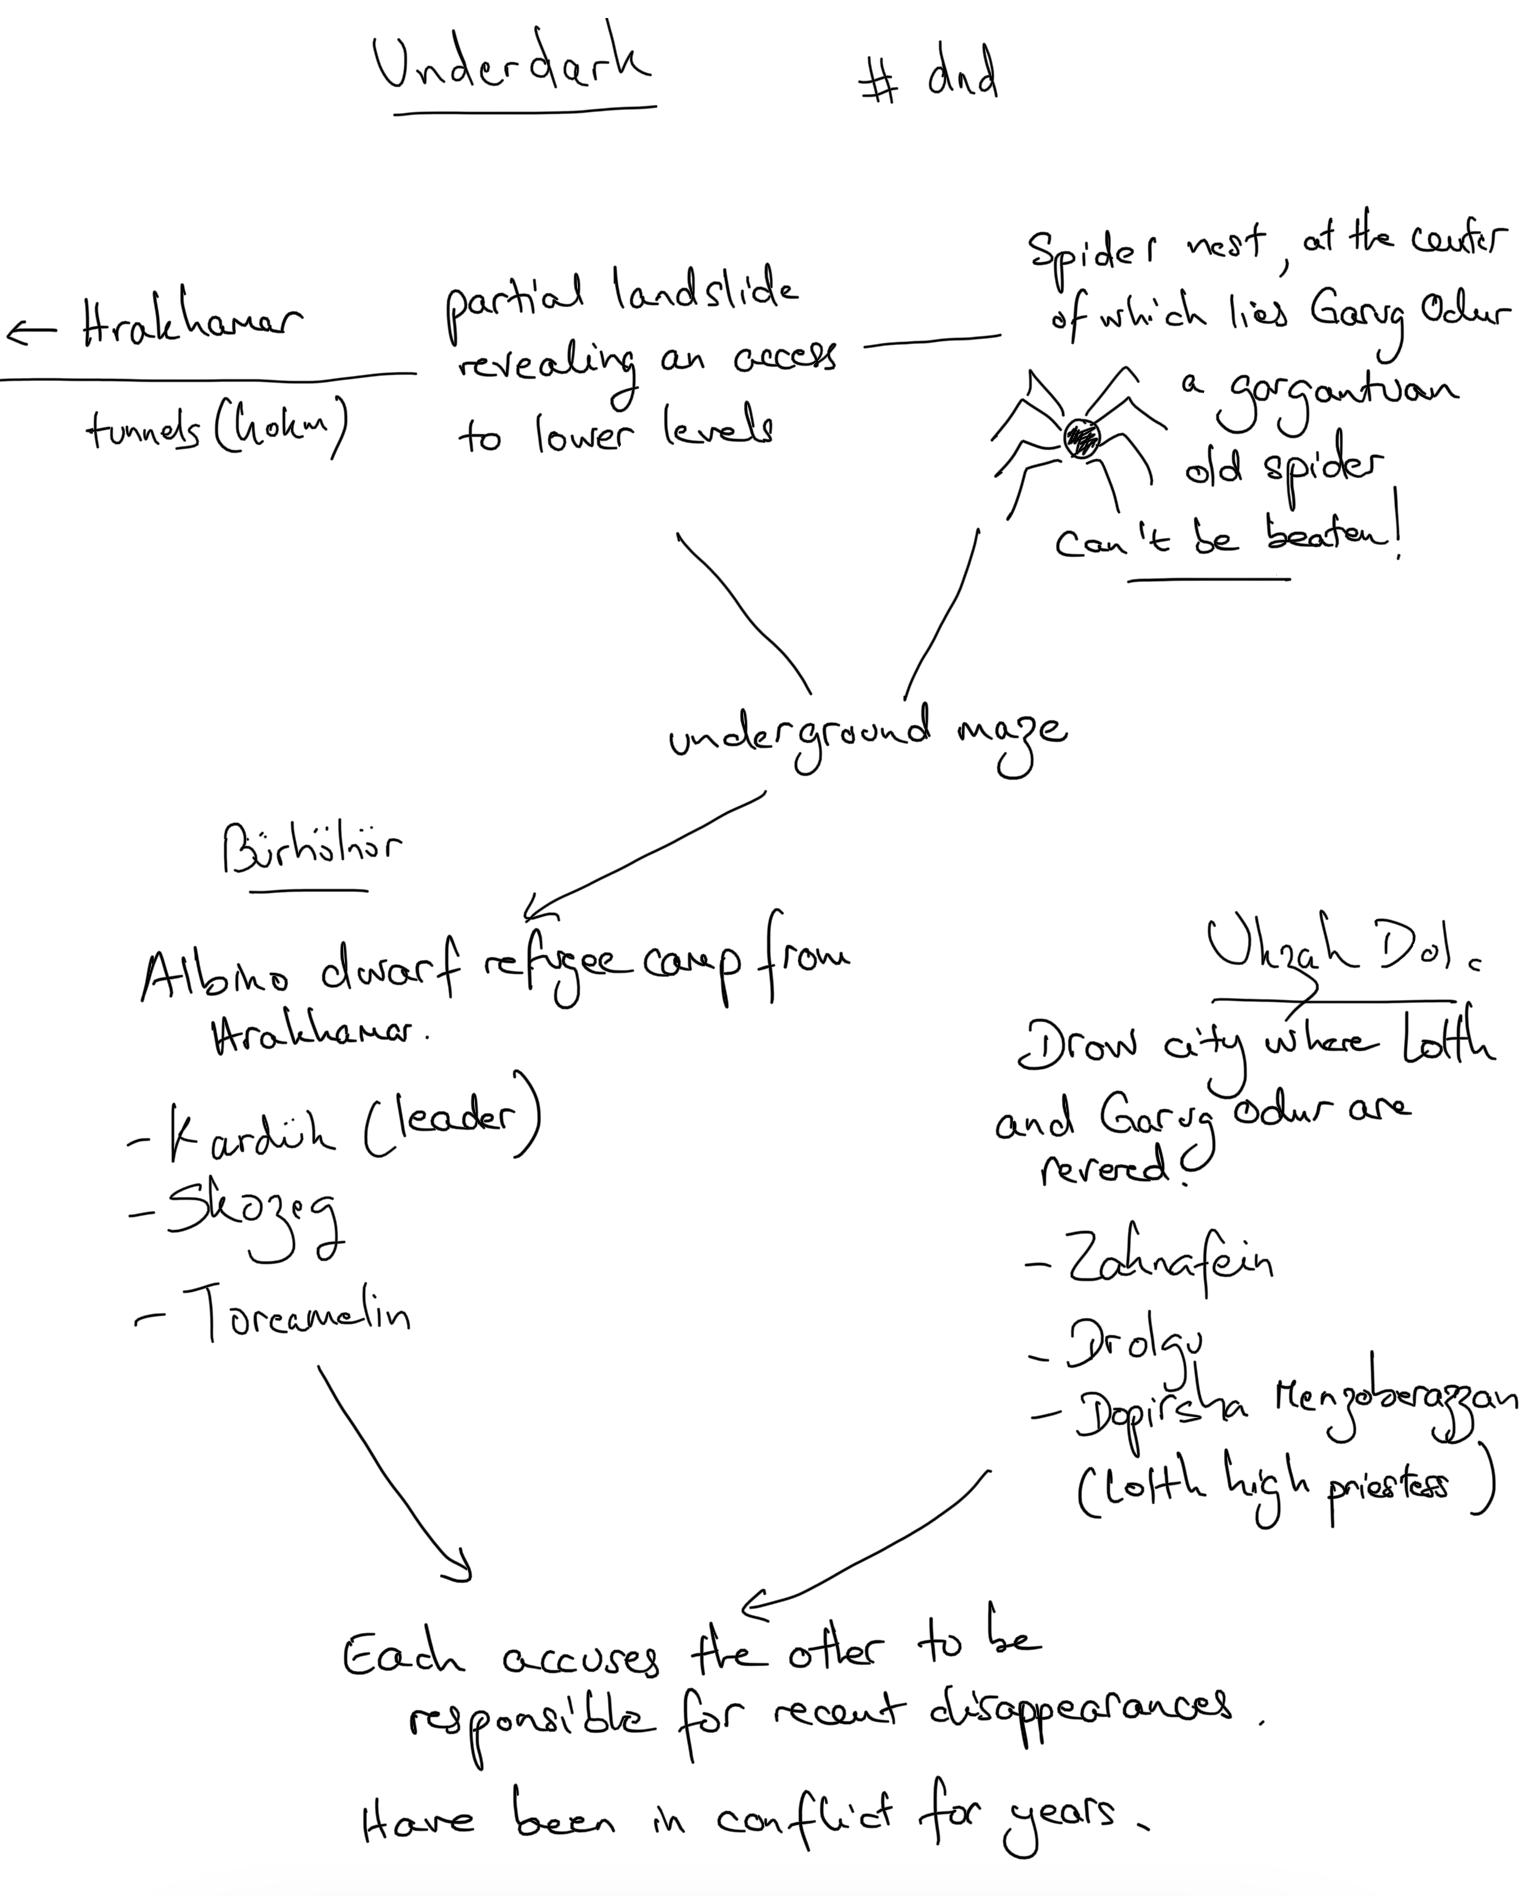 Underdark
# dnd
← Hrakhamar
tunnels (40km)
partial landslide
revealing an access
to lower levels
Spider nest, at the center
of which lies Garug Odur
a gargantuan
old spider
can't be beaten!
underground maze
Bürhölnör
Albino dwarf refugee camp from
Hrakhamar.
- Kardük (leader)
- Skozeg
- Toreamelin
Ukzah Dol.
Drow city where Lolth
and Garug Odur are
revered.
- Zaknafein
- Drolgu
- Dopirsha Menzoberazzan
(Lolth high priestess)
Each accuses the other to be
responsible for recent disappearances.
Have been in conflict for years.